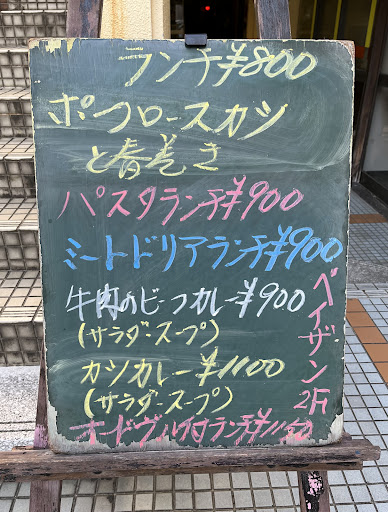 ランチ¥800
ポークロースカツ
と春巻き
パスタランチ¥900
ミートドリアランチ¥900
牛肉のビーフカレー¥900
(サラダ・スープ)
カツカレー¥1100
(サラダ・スープ)
オードヴル付ランチ¥1150
ペイザン
2F